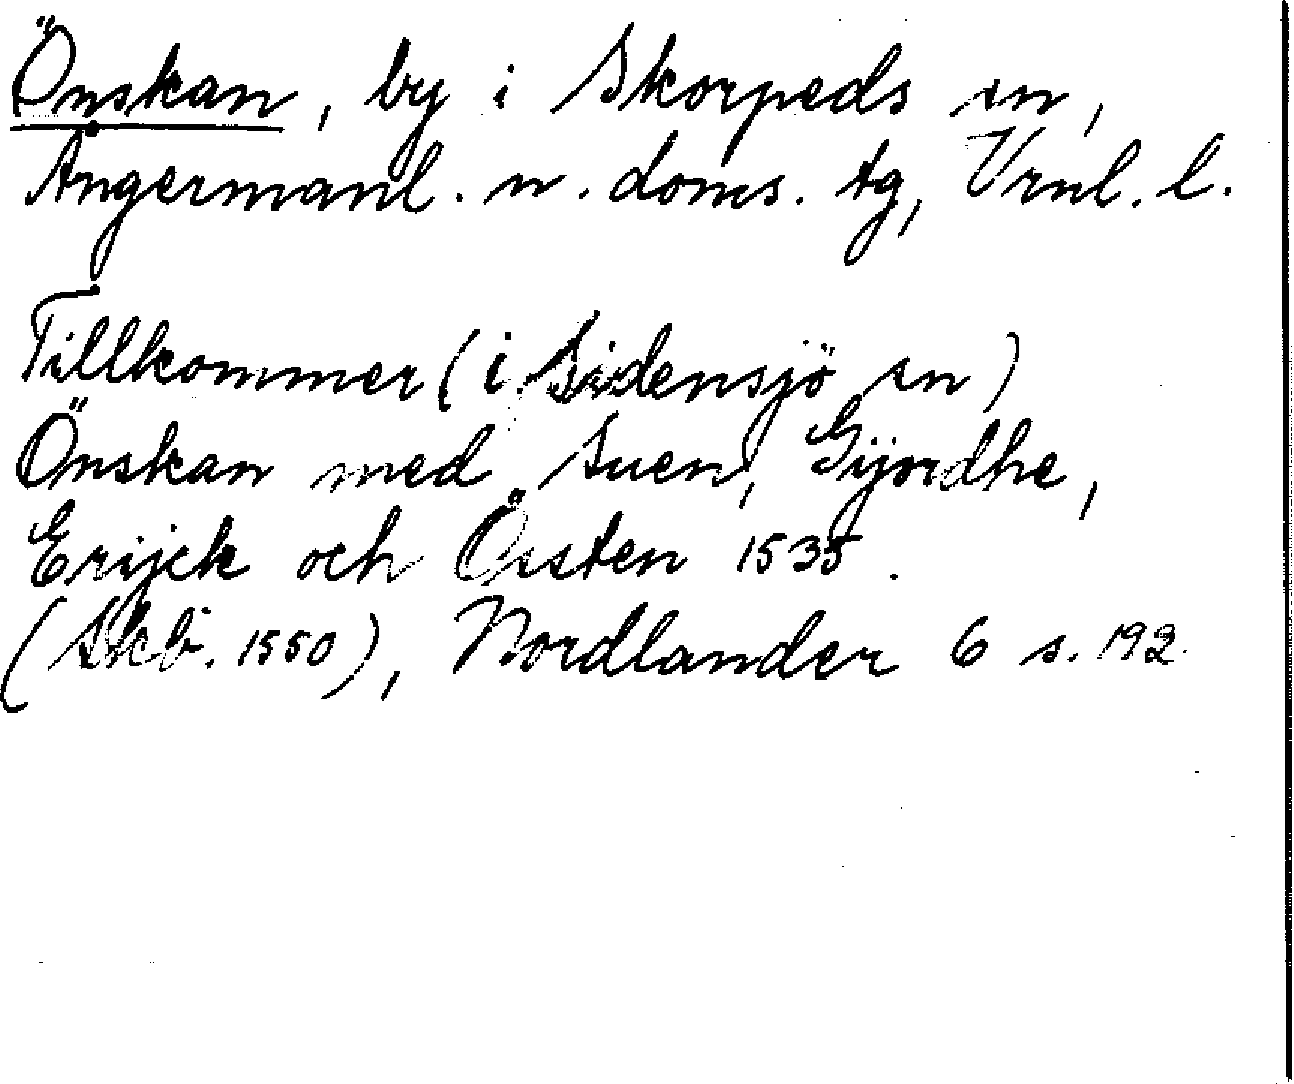 Önskan, by i Skorpeds sn,
Ångermanl. n. doms. tg, Vrnl. l.
Tillkommer (i Sidensjö sn)
Önskan med Suen, Gijordhe,
Erijck och Össten 1535.
(Skb. 1550), Nordlander 6 s. 192.